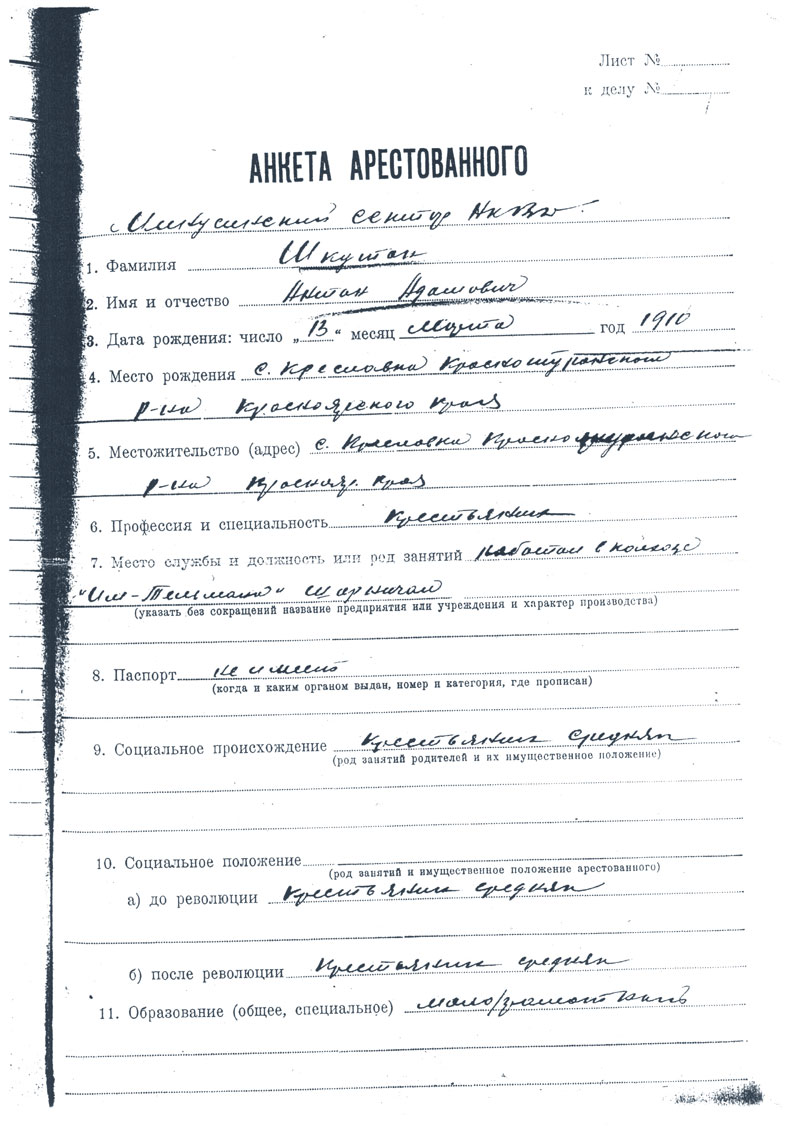 Лист №
к делу №
АНКЕТА АРЕСТОВАННОГО
Минусинский сектор НКВД
1. Фамилия Шкутан
2. Имя и отчество Антон Адамович
3. Дата рождения: число „13“ месяц Марта год 1910
4. Место рождения с. Креславка Краснотуранского
р-на Красноярского края
5. Местожительство (адрес) с. Креславка Краснотуранского
р-на Краснояр. края
6. Профессия и специальность Крестьянин
7. Место службы и должность или род занятий Работал в колхозе
"Им-Тельмана"
(указать без сокращений название предприятия или учреждения и характер производства)
8. Паспорт не имеет
(когда и каким органом выдан, номер и категория, где прописан)
9. Социальное происхождение Крестьянин средняк
(род занятий родителей и их имущественное положение)
10. Социальное положение
(род занятий и имущественное положение арестованного)
а) до революции Крестьянин средняк
б) после революции Крестьянин средняк
11. Образование (общее, специальное)